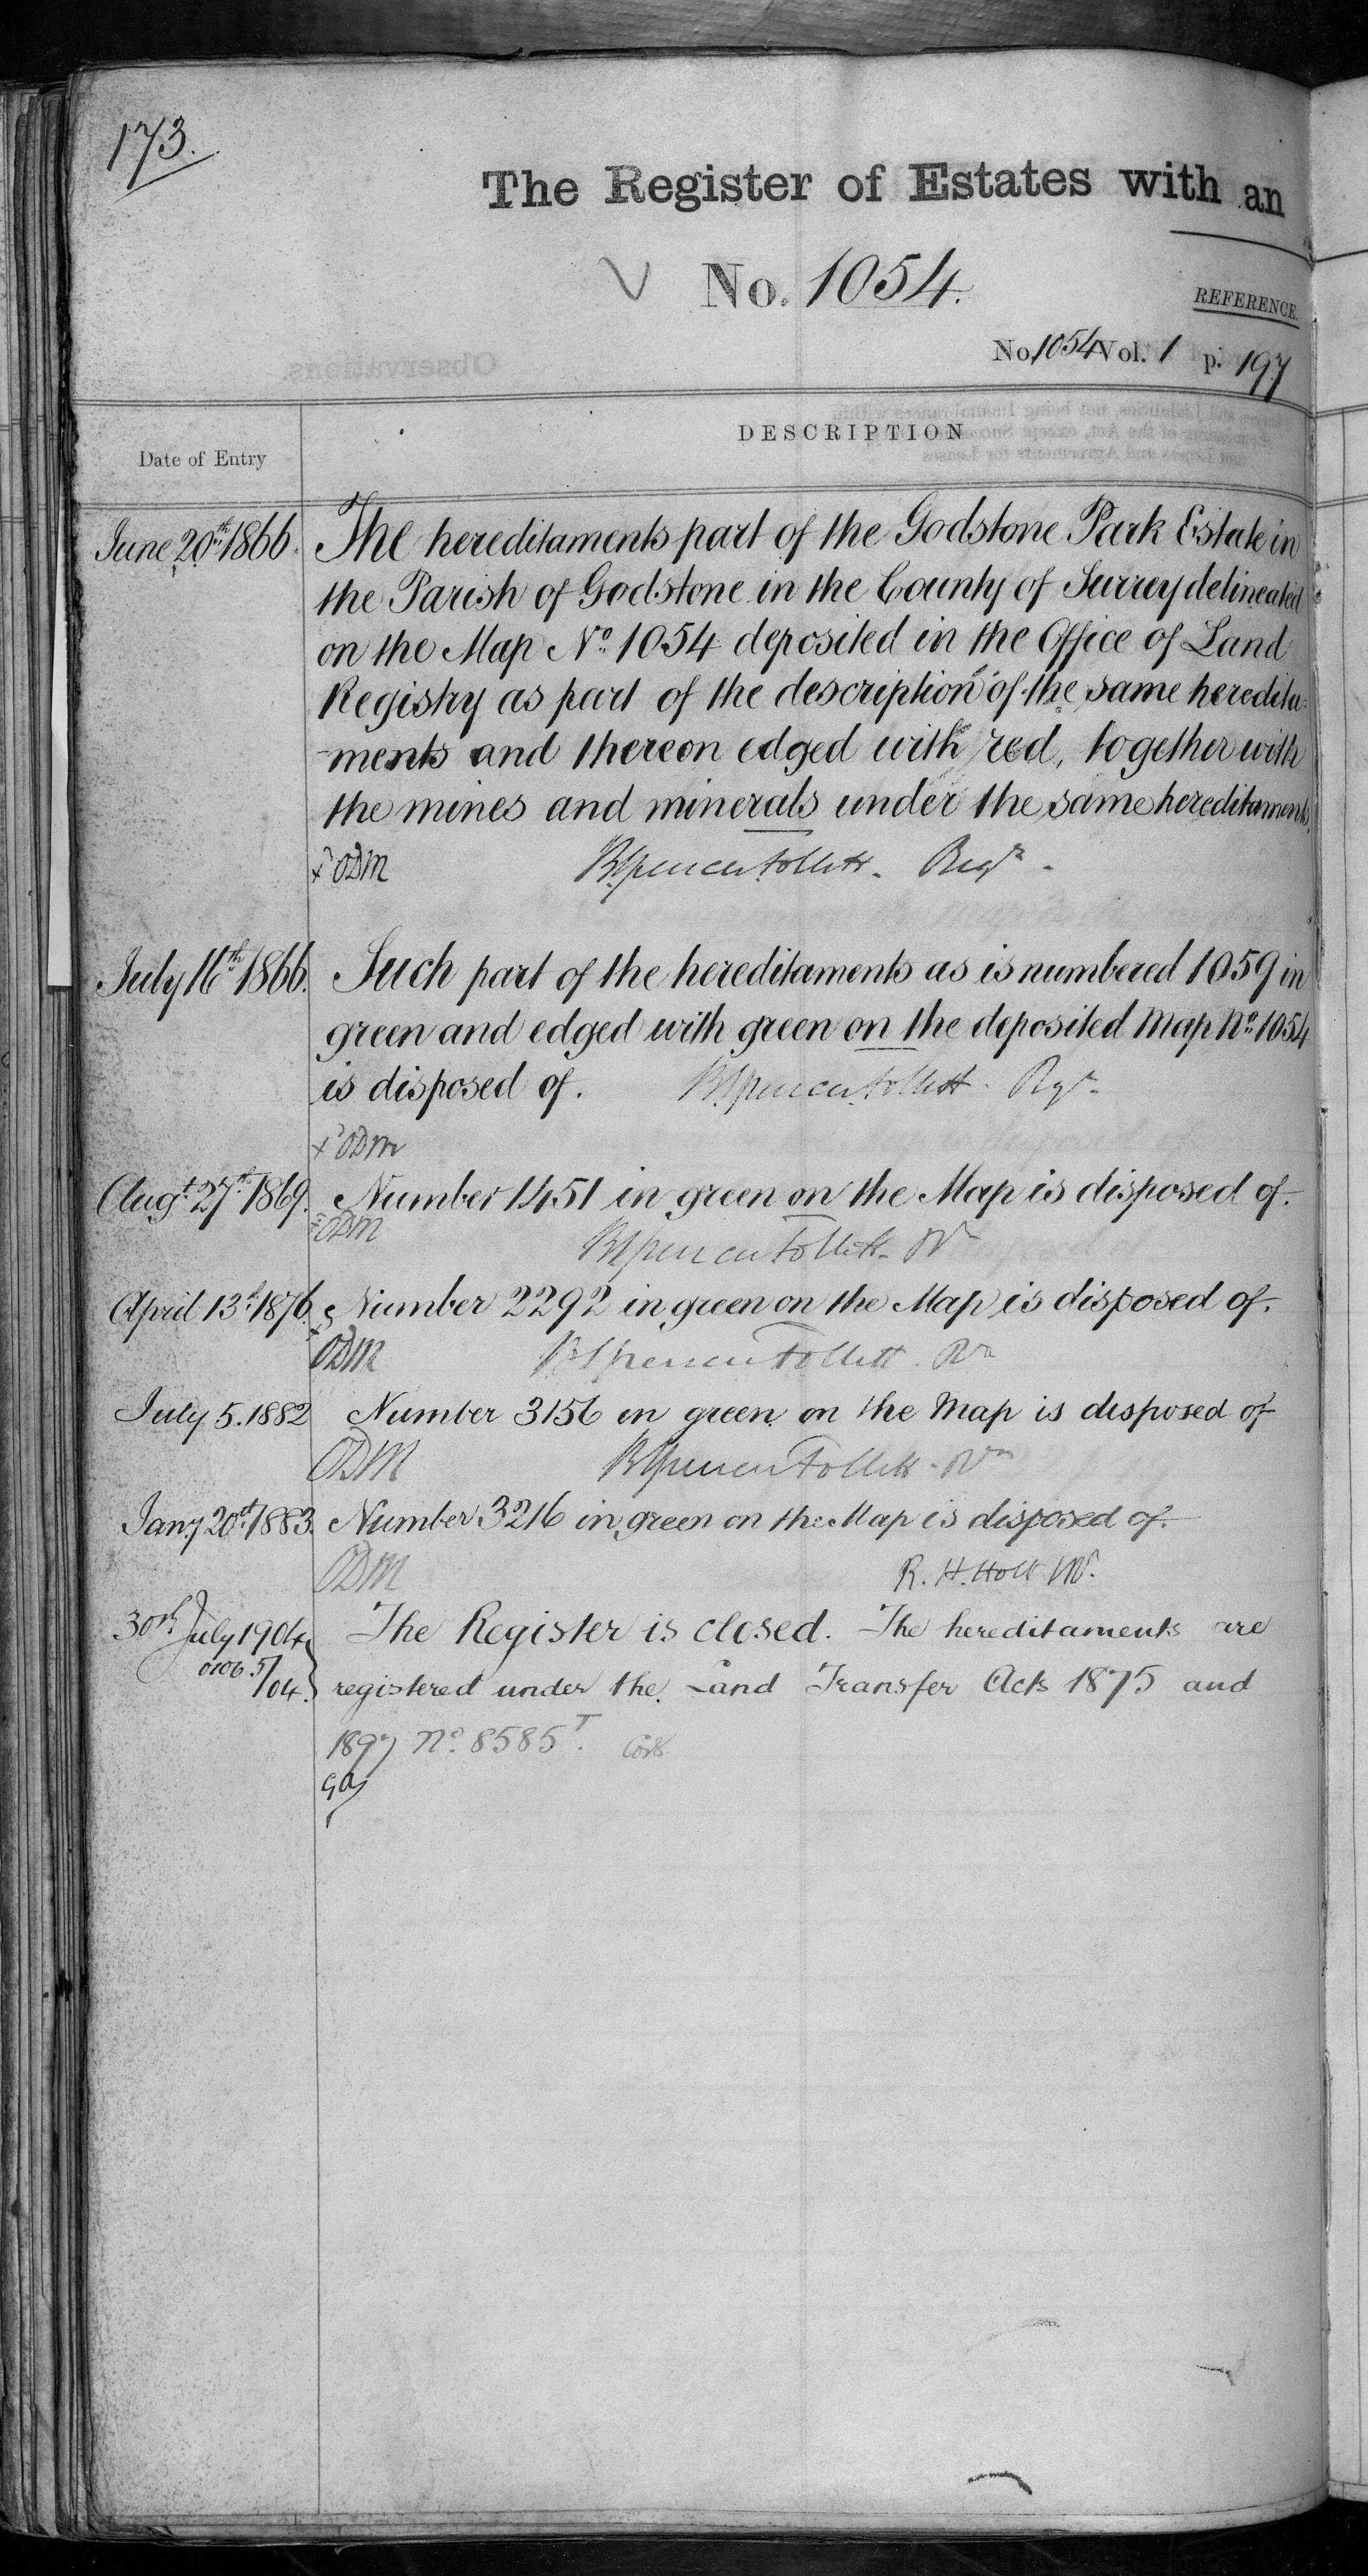 173.
The Register of Estates with an
No. 1054.
REFERENCE.
No. 1054 Vol. 1 p. 197
DESCRIPTION
Date of Entry
June 20th 1866. The hereditaments part of the Godstone Park Estate in
the Parish of Godstone in the County of Surrey delineated
on the Map No. 1054 deposited in the Office of Land
Registry as part of the description of the same heredita-
-ments and thereon edged with red, together with
the mines and minerals under the same hereditaments.
ODM BSpencer Follett. Regr.
July 16th 1866. Such part of the hereditaments as is numbered 1059 in
green and edged with green on the deposited Map No. 1054
is disposed of. BSpencer Follett. Rgr.
ODM
Augt. 27th 1869. Number 1451 in green on the Map is disposed of.
ODM BSpencer Follett. Rr
April 13th 1876. Number 2292 in green on the Map is disposed of.
ODM BSpencer Follett. Rr
July 5. 1882 Number 3156 in green on the Map is disposed of
ODM BSpencer Follett. Rr
Jany 20th 1883. Number 3216 in green on the Map is disposed of.
ODM R. H. Holt
30th July 1904 The Register is closed. The hereditaments are
5/04. registered under the Land Transfer Acts 1875 and
1897 No. 8585T.